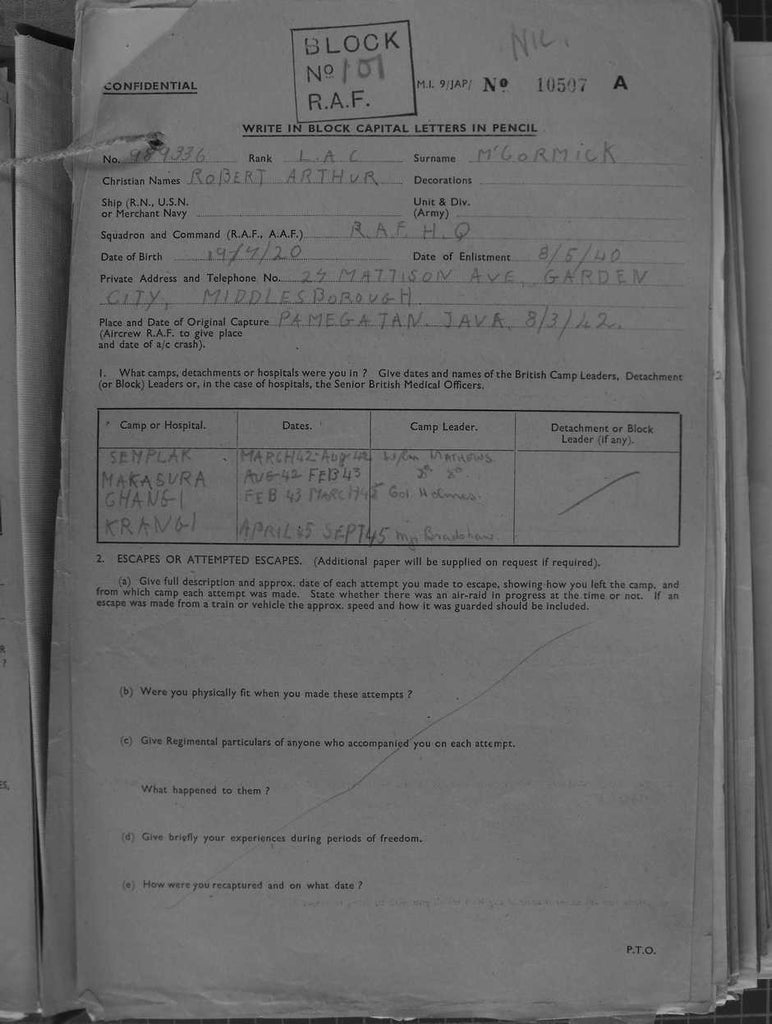 NIL.
BLOCK
Nº 101
R.A.F.
CONFIDENTIAL M.I. 9/JAP/ Nº 10507 A
WRITE IN BLOCK CAPITAL LETTERS IN PENCIL
No. 989336 Rank L.A.C Surname McCORMICK
Christian Names ROBERT ARTHUR Decorations
Ship (R.N., U.S.N. Unit & Div.
or Merchant Navy (Army)
Squadron and Command (R.A.F., A.A.F.) R.A.F. H.Q
Date of Birth 19/7/20 Date of Enlistment 8/5/40
Private Address and Telephone No. MATTISON AVE, GARDEN
CITY, MIDDLESBOROUGH.
Place and Date of Original Capture PAMEGATAN. JAVA. 8/3/42.
(Aircrew R.A.F. to give place
and date of a/c crash).
1. What camps, detachments or hospitals were you in ? Give dates and names of the British Camp Leaders, Detachment
(or Block) Leaders or, in the case of hospitals, the Senior British Medical Officers.
Camp or Hospital. Dates. Camp Leader. Detachment or Block
Leader (if any).
SEMPLAK MARCH 42-Aug 42 MATHEWS
MAKASURA AUG-42 FEB 43 Do Do
CHANGI FEB 43 MARCH 45 Col. Holmes.
KRANGI APRIL 45 SEPT 45 Maj Bradshaw.
2. ESCAPES OR ATTEMPTED ESCAPES. (Additional paper will be supplied on request if required).
(a) Give full description and approx. date of each attempt you made to escape, showing how you left the camp, and
from which camp each attempt was made. State whether there was an air-raid in progress at the time or not. If an
escape was made from a train or vehicle the approx. speed and how it was guarded should be included.
(b) Were you physically fit when you made these attempts ?
(c) Give Regimental particulars of anyone who accompanied you on each attempt.
What happened to them ?
(d) Give briefly your experiences during periods of freedom.
(e) How were you recaptured and on what date ?
P.T.O.